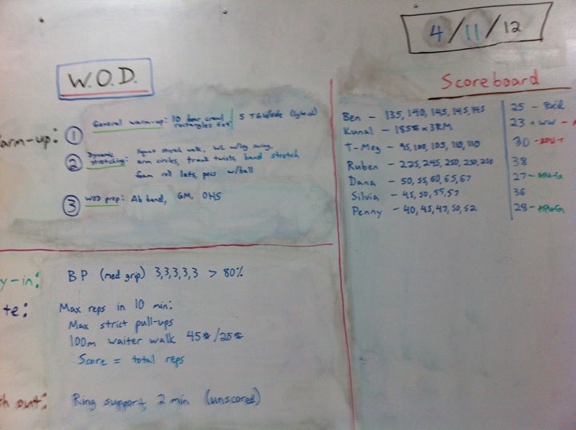 4/11/12
W.O.D.
arm-up:
1 General warm-up: 10 bear crawl
rectangles
2 Dynamic stretching: squat
arm circles, trunk twists band stretch
roll lats, pecs w/ball
3 WOD prep: Ab band, GM, OHS
y-in:
BP (med grip) 3,3,3,3,3 > 80%
te:
Max reps in 10 min:
Max strict pull-ups
100m waiter walk 45#/25#
Score = total reps
h out:
Ring support, 2 min (unscored)
Scoreboard
Ben - 135, 140, 145, 145, 145 25 - Red
Kunal - 185# x 3RM 23 - WW -
T-Meg - 95, 100, 105, 110, 110 30 -
Ruben - 225, 245, 250, 250, 250 38
Dana - 50, 55, 60, 65, 67 27 -
Silvia - 45, 50, 55, 57 36
Penny - 40, 45, 47, 50, 52 28 -